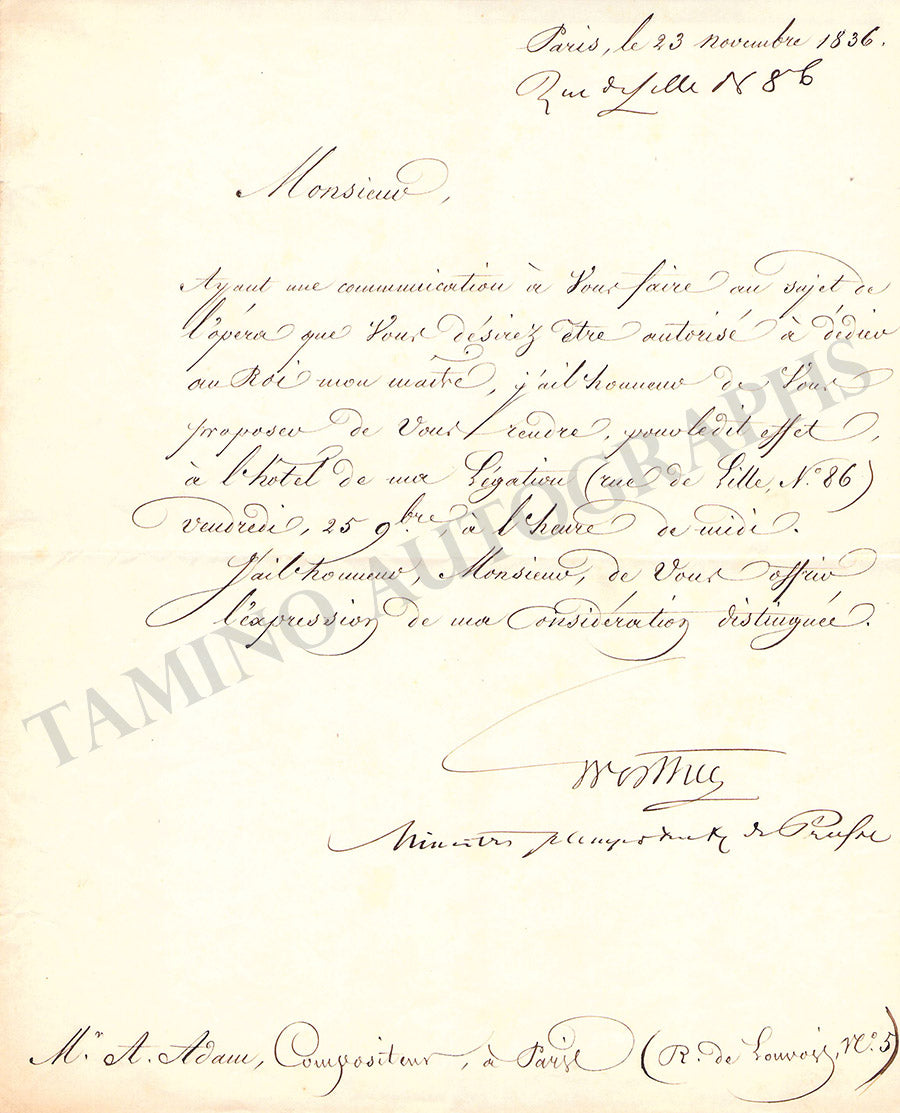 Paris, le 23 novembre 1836.
Rue de Lille N 86
Monsieur,
Ayant une communication à Vous faire au sujet de
l'opéra que Vous désirez être autorisé à dédier
au Roi mon maître, j'ai l'honneur de Vous
proposer de Vous rendre, pour ledit effet,
à l'hôtel de ma Légation (rue de Lille, N.° 86)
vendredi, 25 9bre, à l'heure de midi.
J'ai l'honneur, Monsieur, de Vous offrir
l'expression de ma Considération distinguée.
Ministre plenipotentiaire de Prusse
Mr. A. Adam, Compositeur, à Paris (R. de Louvois, N.° 5)
TAMINO AUTOGRAPHS